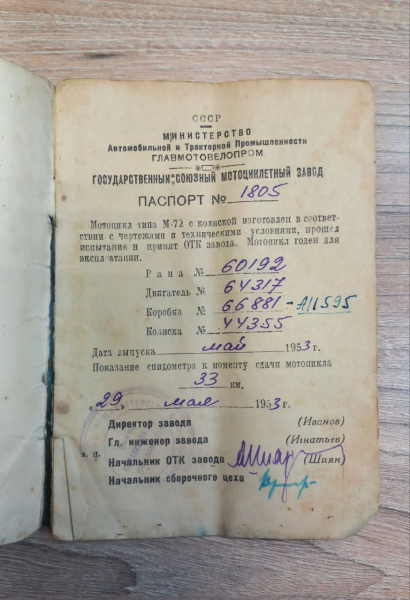 СССР
МИНИСТЕРСТВО
Автомобильной и Тракторной Промышленности
ГЛАВМОТОВЕЛОПРОМ
ГОСУДАРСТВЕННЫЙ СОЮЗНЫЙ МОТОЦИКЛЕТНЫЙ ЗАВОД
ПАСПОРТ № 1805
Мотоцикл типа М-72 с коляской изготовлен в соответ-
ствии с чертежами и техническими условиями, прошел
испытание и принят ОТК завода. Мотоцикл годен для
эксплоатации.
Рама № 60192
Двигатель № 64317
Коробка № 66881 - АП595
Коляска № 44355
Дата выпуска май 1953 г.
Показание спидометра к моменту сдачи мотоцикла
33 км.
„29" мая 1953 г.
Директор завода (Иванов)
Гл. инженер завода (Игнатьев)
Начальник ОТК завода (Шиян)
Начальник сборочного цеха